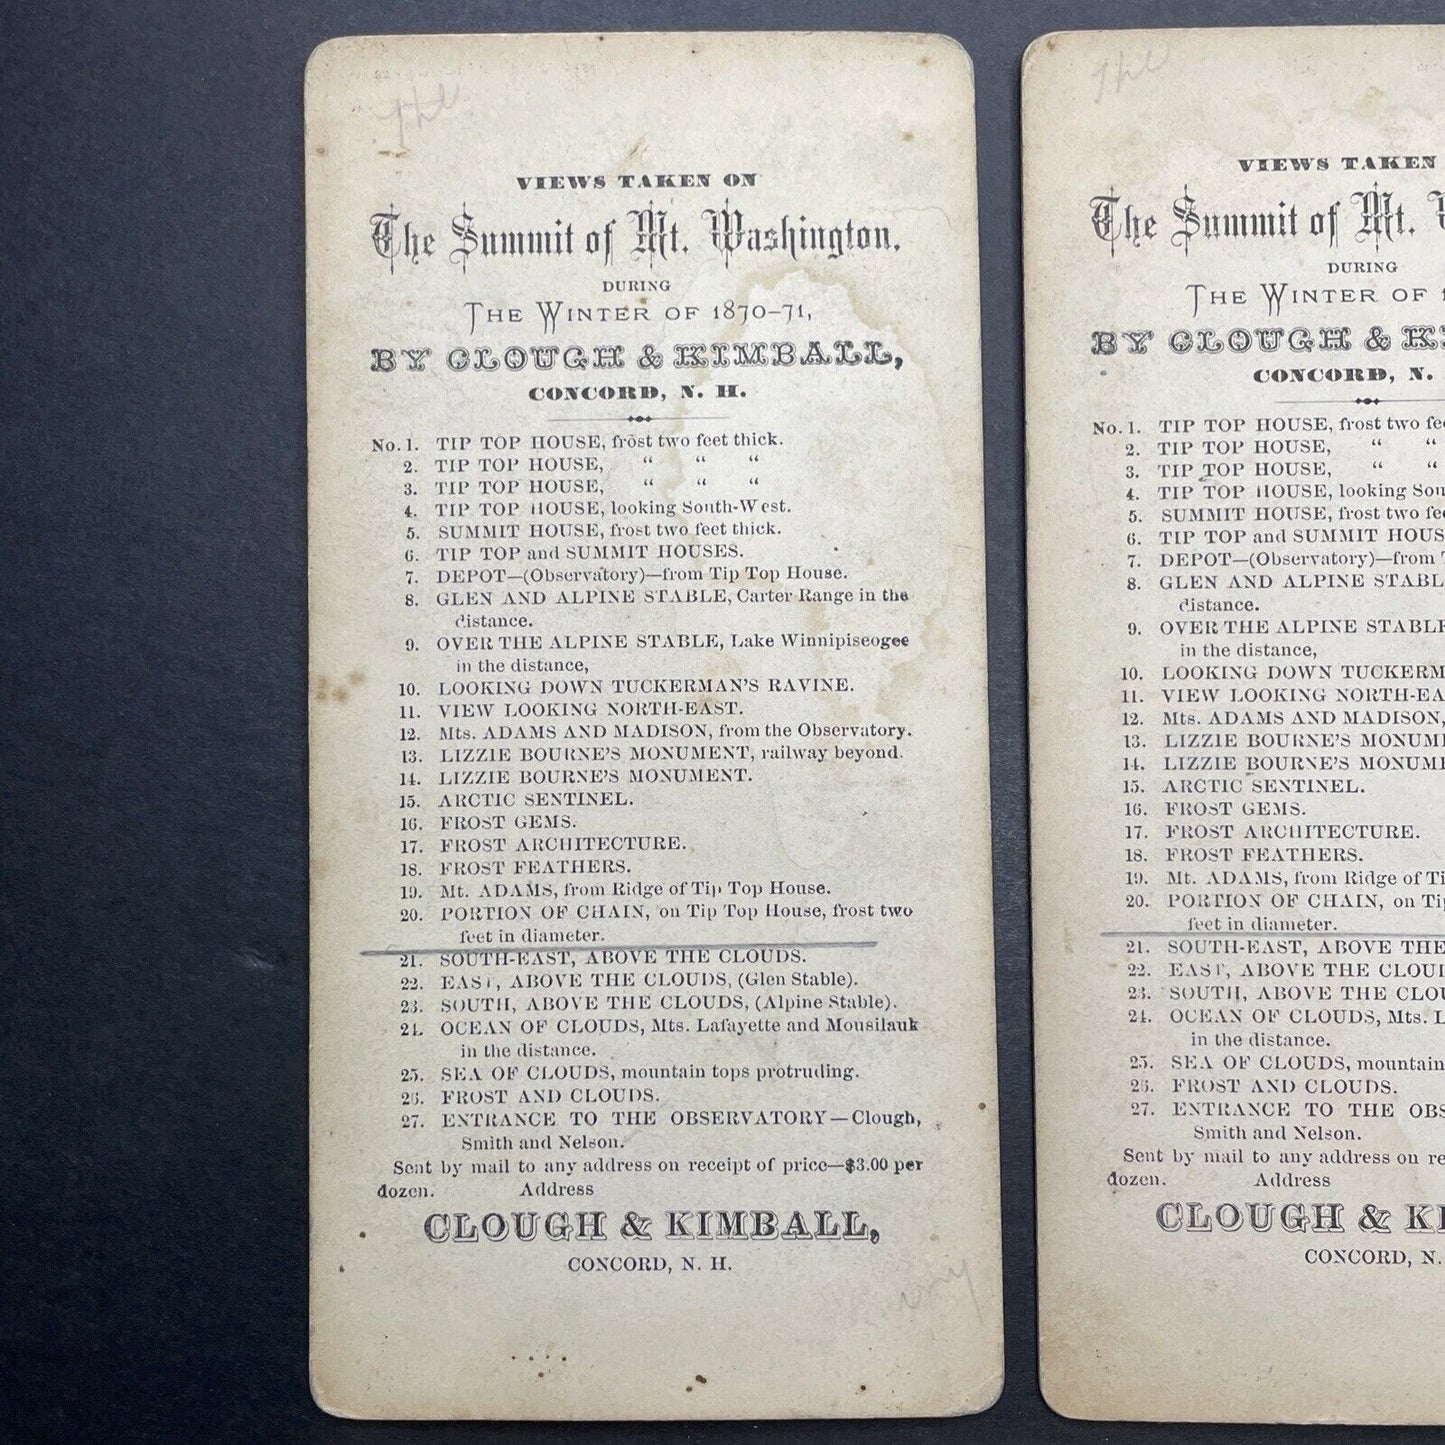 VIEWS TAKEN ON
The Summit of Mt. Washington.
DURING
THE WINTER OF 1870-71,
BY CLOUGH & KIMBALL,
CONCORD, N. H.
No. 1. TIP TOP HOUSE, frost two feet thick.
2. TIP TOP HOUSE, “ “ “
3. TIP TOP HOUSE, “ “ “
4. TIP TOP HOUSE, looking South-West.
5. SUMMIT HOUSE, frost two feet thick.
6. TIP TOP and SUMMIT HOUSES.
7. DEPOT—(Observatory)—from Tip Top House.
8. GLEN AND ALPINE STABLE, Carter Range in the
distance.
9. OVER THE ALPINE STABLE, Lake Winnipiseogee
in the distance,
10. LOOKING DOWN TUCKERMAN'S RAVINE.
11. VIEW LOOKING NORTH-EAST.
12. Mts. ADAMS AND MADISON, from the Observatory.
13. LIZZIE BOURNE'S MONUMENT, railway beyond.
14. LIZZIE BOURNE'S MONUMENT.
15. ARCTIC SENTINEL.
16. FROST GEMS.
17. FROST ARCHITECTURE.
18. FROST FEATHERS.
19. Mt. ADAMS, from Ridge of Tip Top House.
20. PORTION OF CHAIN, on Tip Top House, frost two
feet in diameter.
21. SOUTH-EAST, ABOVE THE CLOUDS.
22. EAST, ABOVE THE CLOUDS, (Glen Stable).
23. SOUTH, ABOVE THE CLOUDS, (Alpine Stable).
24. OCEAN OF CLOUDS, Mts. Lafayette and Mousilauk
in the distance.
25. SEA OF CLOUDS, mountain tops protruding.
26. FROST AND CLOUDS.
27. ENTRANCE TO THE OBSERVATORY—Clough,
Smith and Nelson.
Sent by mail to any address on receipt of price—$3.00 per
dozen. Address
CLOUGH & KIMBALL,
CONCORD, N. H.
VIEWS TAKEN
The Summit of Mt.
DURING
THE WINTER OF 1
BY CLOUGH & KI
CONCORD, N.
No. 1. TIP TOP HOUSE, frost two fee
2. TIP TOP HOUSE, “ “
3. TIP TOP HOUSE, “ “
4. TIP TOP HOUSE, looking Sou
5. SUMMIT HOUSE, frost two fee
6. TIP TOP and SUMMIT HOUS
7. DEPOT—(Observatory)—from
8. GLEN AND ALPINE STABL
distance.
9. OVER THE ALPINE STABLE
in the distance,
10. LOOKING DOWN TUCKERM
11. VIEW LOOKING NORTH-EA
12. Mts. ADAMS AND MADISON,
13. LIZZIE BOURNE'S MONUME
14. LIZZIE BOURNE'S MONUME
15. ARCTIC SENTINEL.
16. FROST GEMS.
17. FROST ARCHITECTURE.
18. FROST FEATHERS.
19. Mt. ADAMS, from Ridge of Ti
20. PORTION OF CHAIN, on Tip
feet in diameter.
21. SOUTH-EAST, ABOVE THE
22. EAST, ABOVE THE CLOUI
23. SOUTH, ABOVE THE CLOU
24. OCEAN OF CLOUDS, Mts. L
in the distance.
25. SEA OF CLOUDS, mountain
26. FROST AND CLOUDS.
27. ENTRANCE TO THE OBS
Smith and Nelson.
Sent by mail to any address on re
dozen. Address
CLOUGH & KI
CONCORD, N.